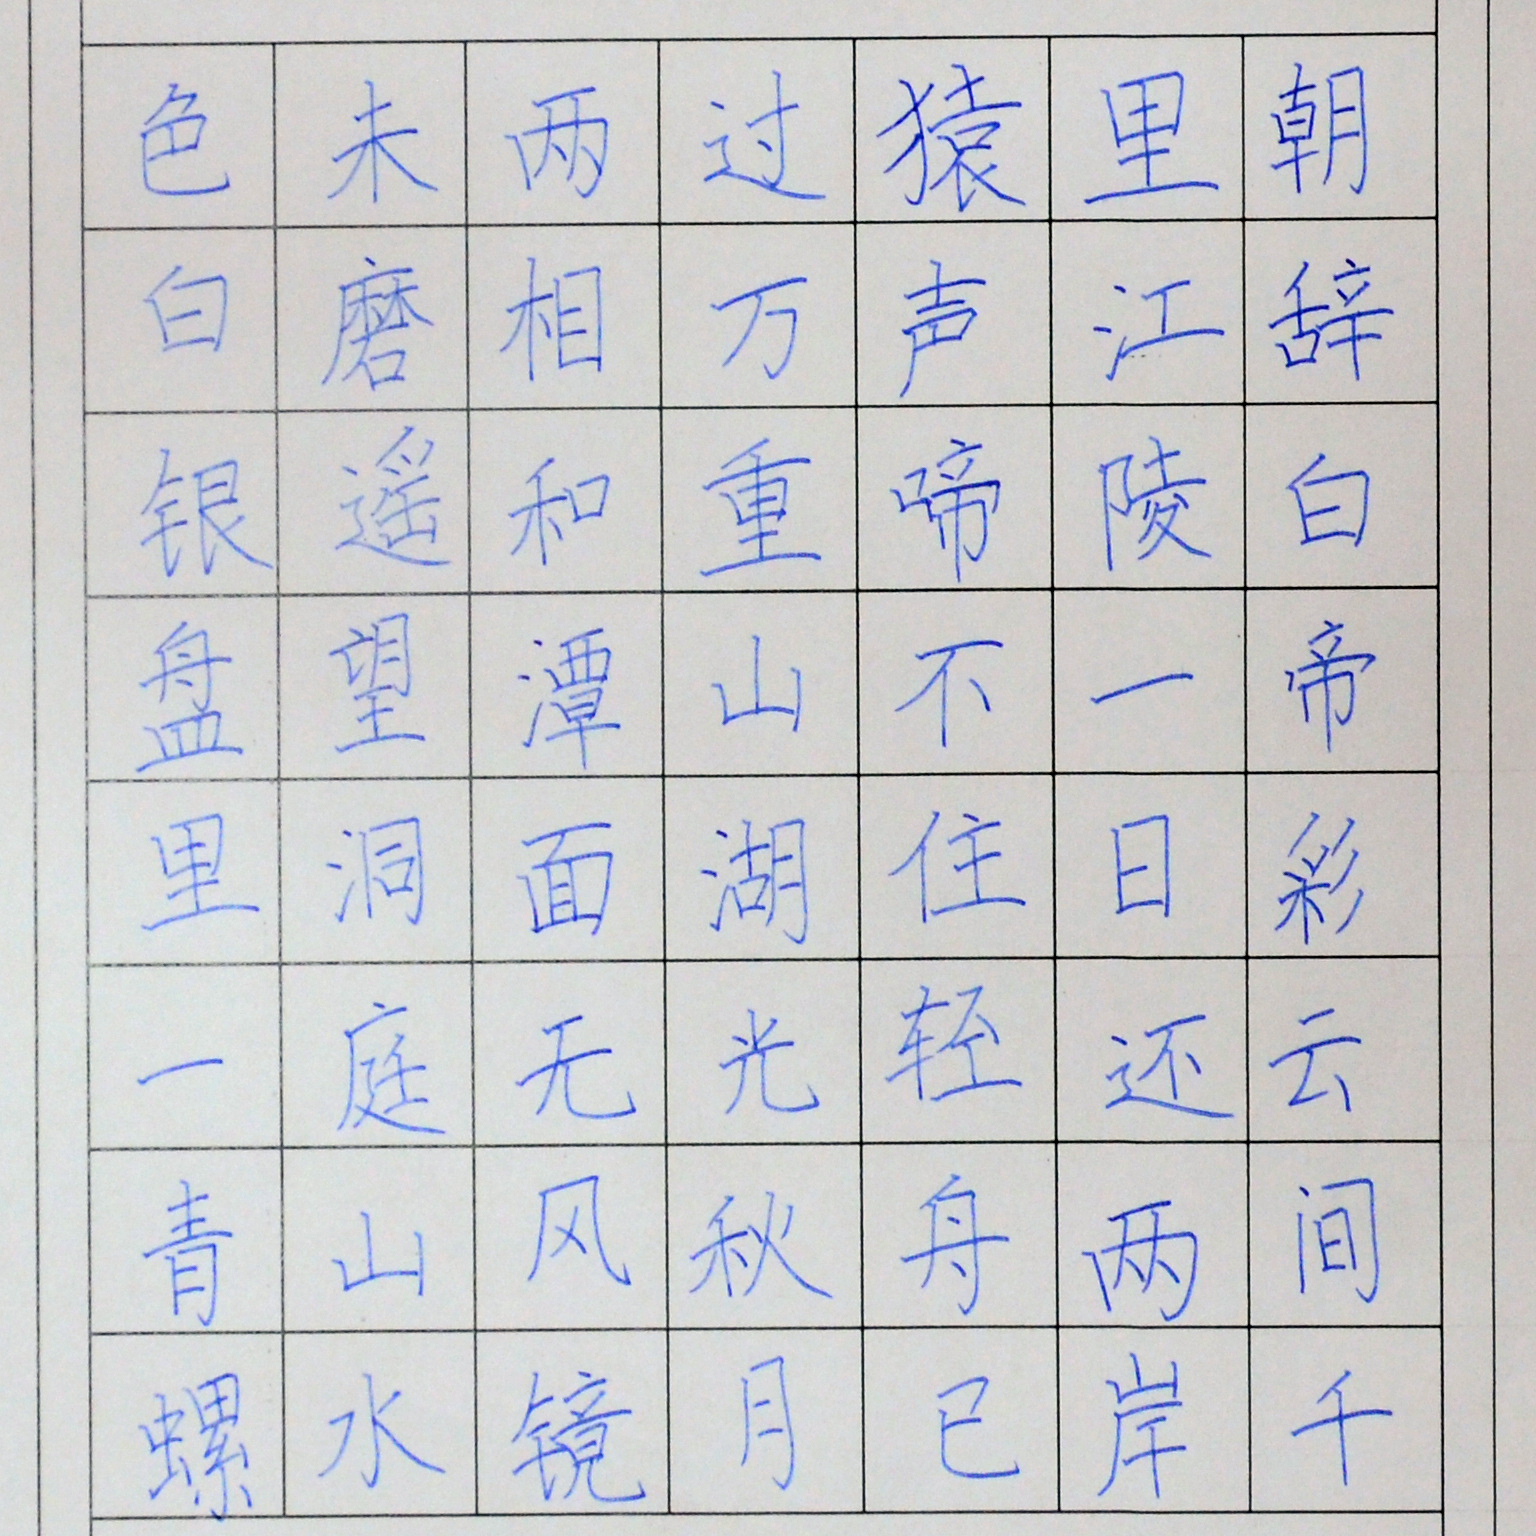 朝辞白帝彩云间千
里江陵一日还两岸
猿声啼不住轻舟已
过万重山湖光秋月
两相和潭面无风镜
未磨遥望洞庭山水
色白银盘里一青螺